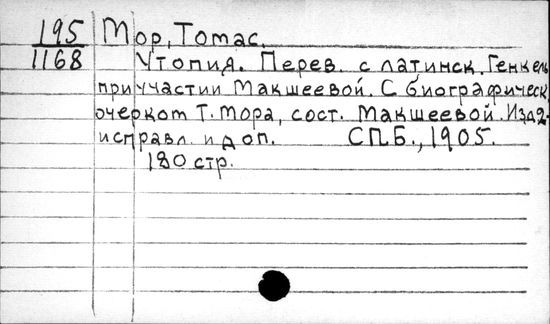 195 Мор, Томас.
1168 Утопия. Перев. с латинск. Генкель
при участии Макшеевой. С биографическ
очерком Т. Мора, сост. Макшеевой. Изд 2-
исправл. и доп. СПБ., 1905.
180 стр.